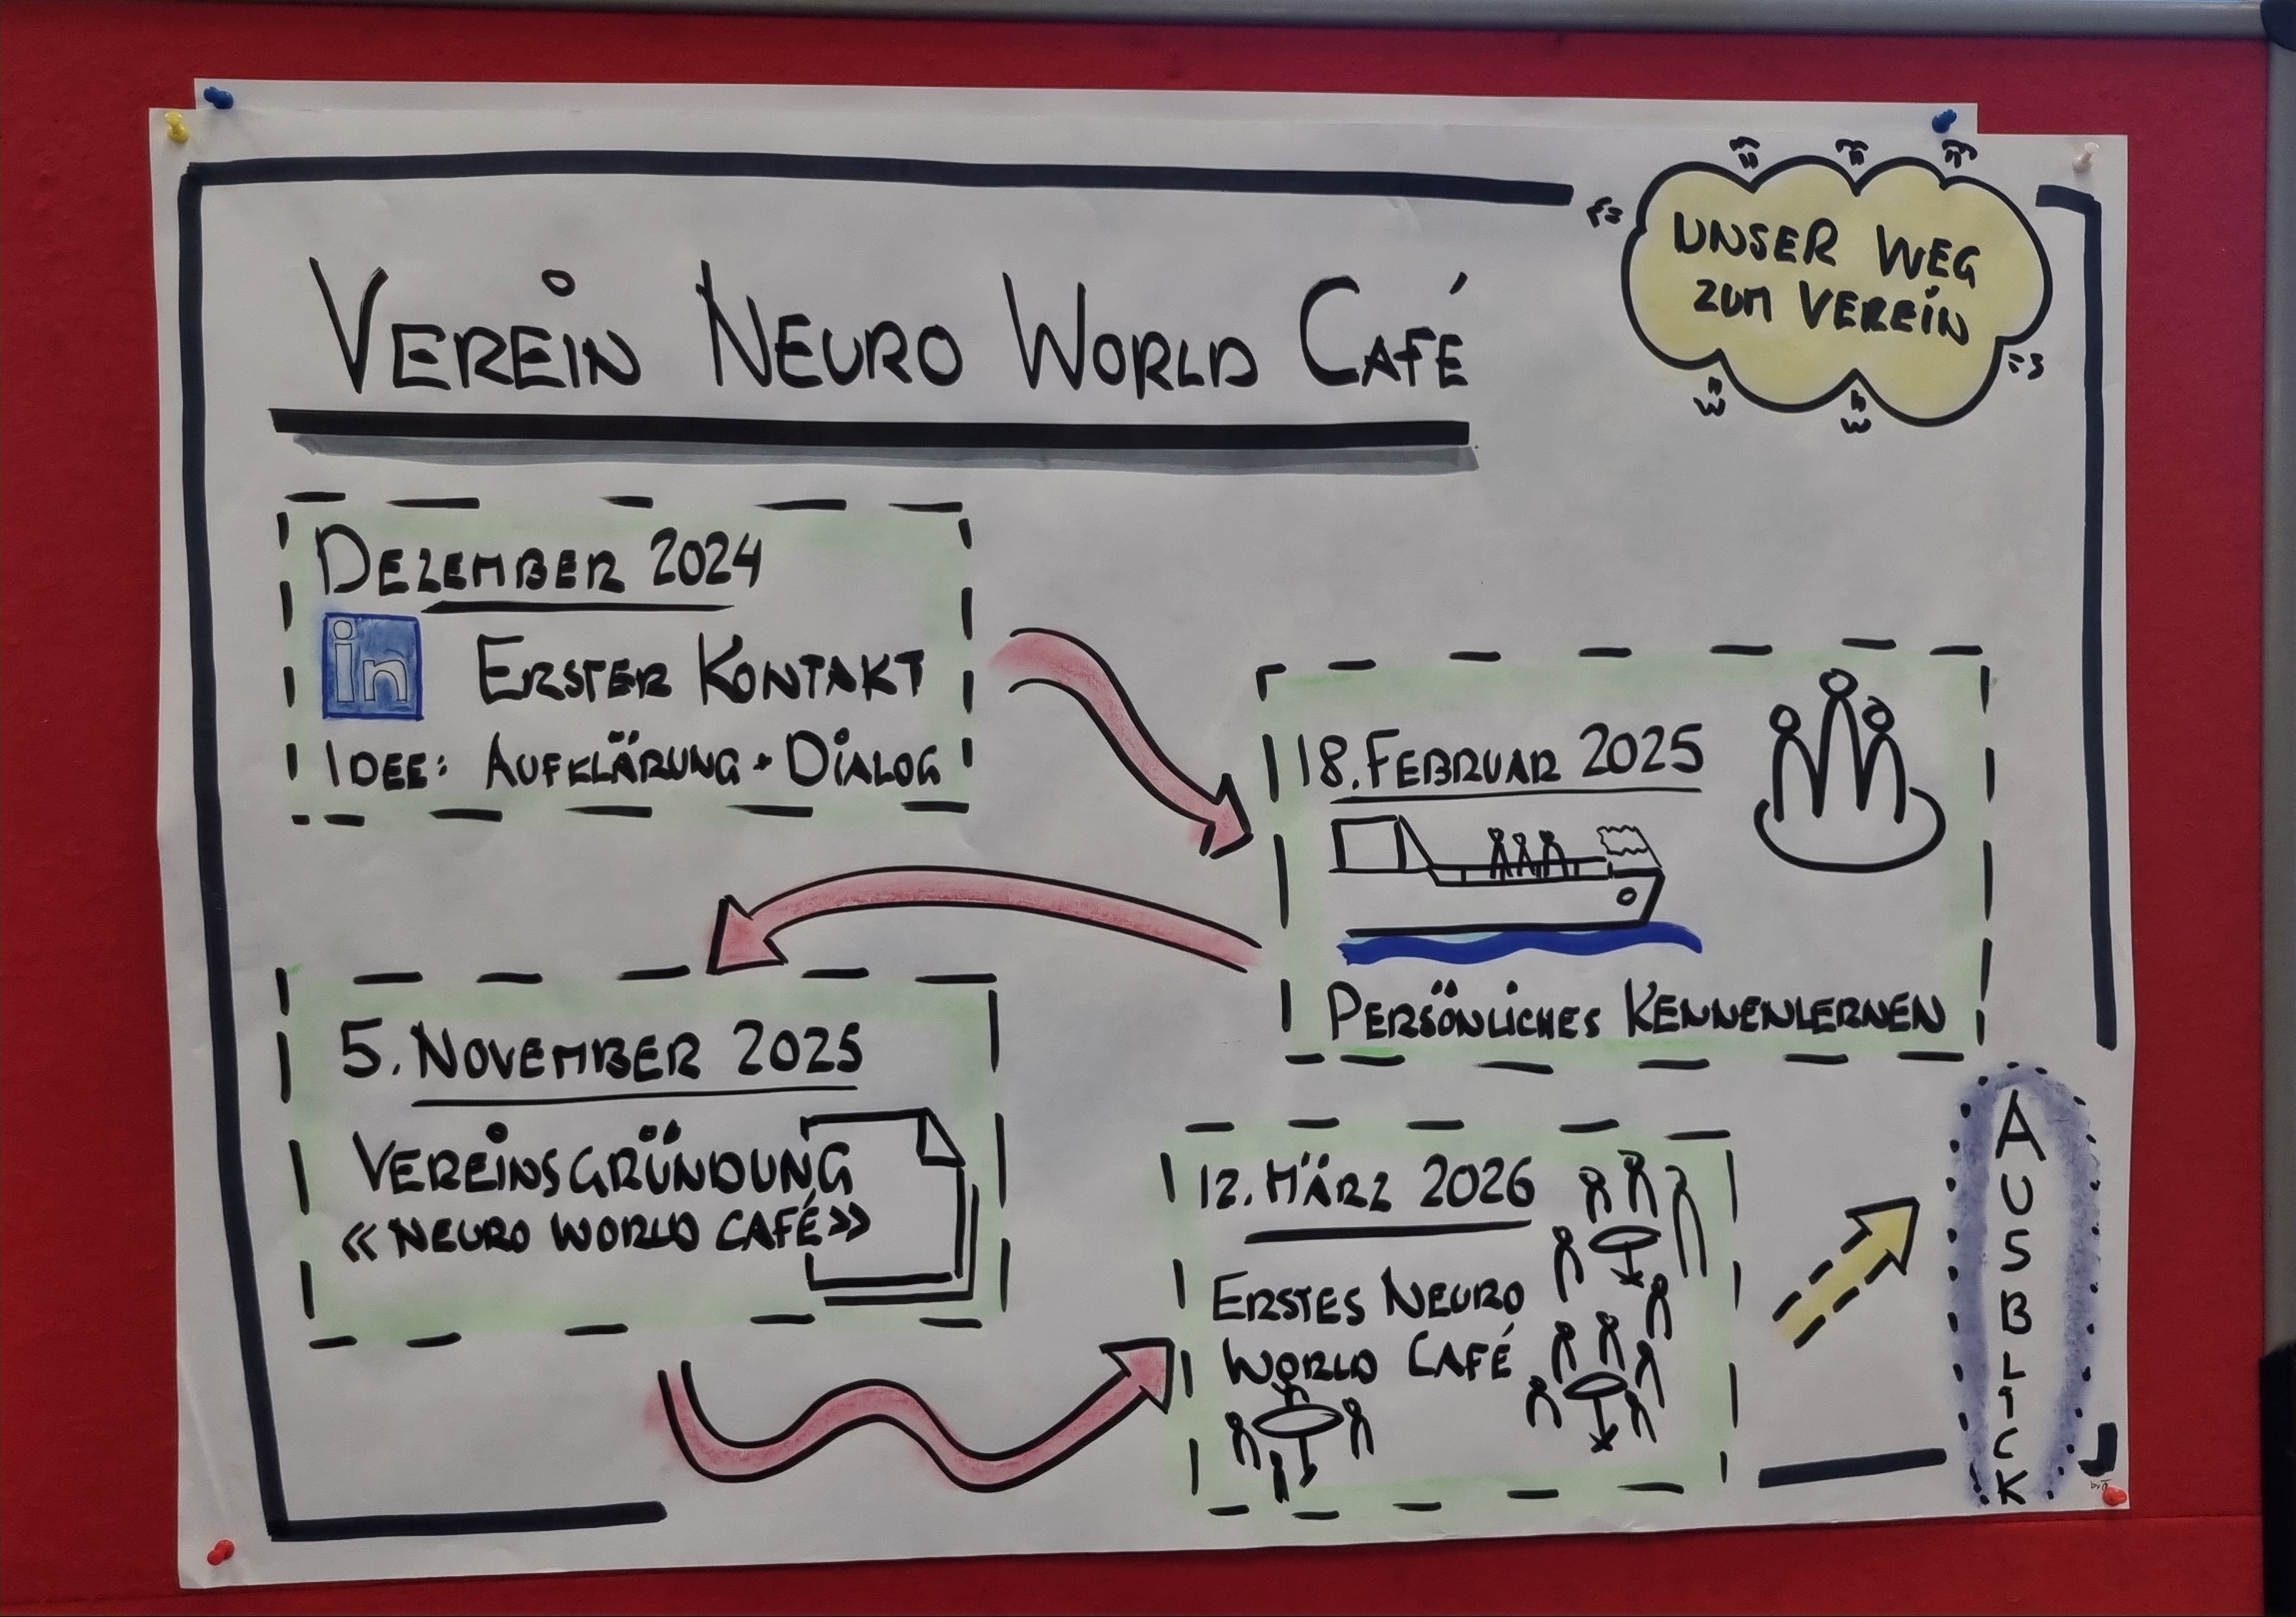 VEREIN NEURO WORLD CAFÉ
UNSER WEG
ZUM VEREIN
DEZEMBER 2024
in ERSTER KONTAKT
IDEE: AUFKLÄRUNG + DIALOG
18. FEBRUAR 2025
PERSÖNLICHES KENNENLERNEN
5. NOVEMBER 2025
VEREINSGRÜNDUNG
«NEURO WORLD CAFÉ»
12. MÄRZ 2026
ERSTES NEURO
WORLD CAFÉ
AUSBLICK